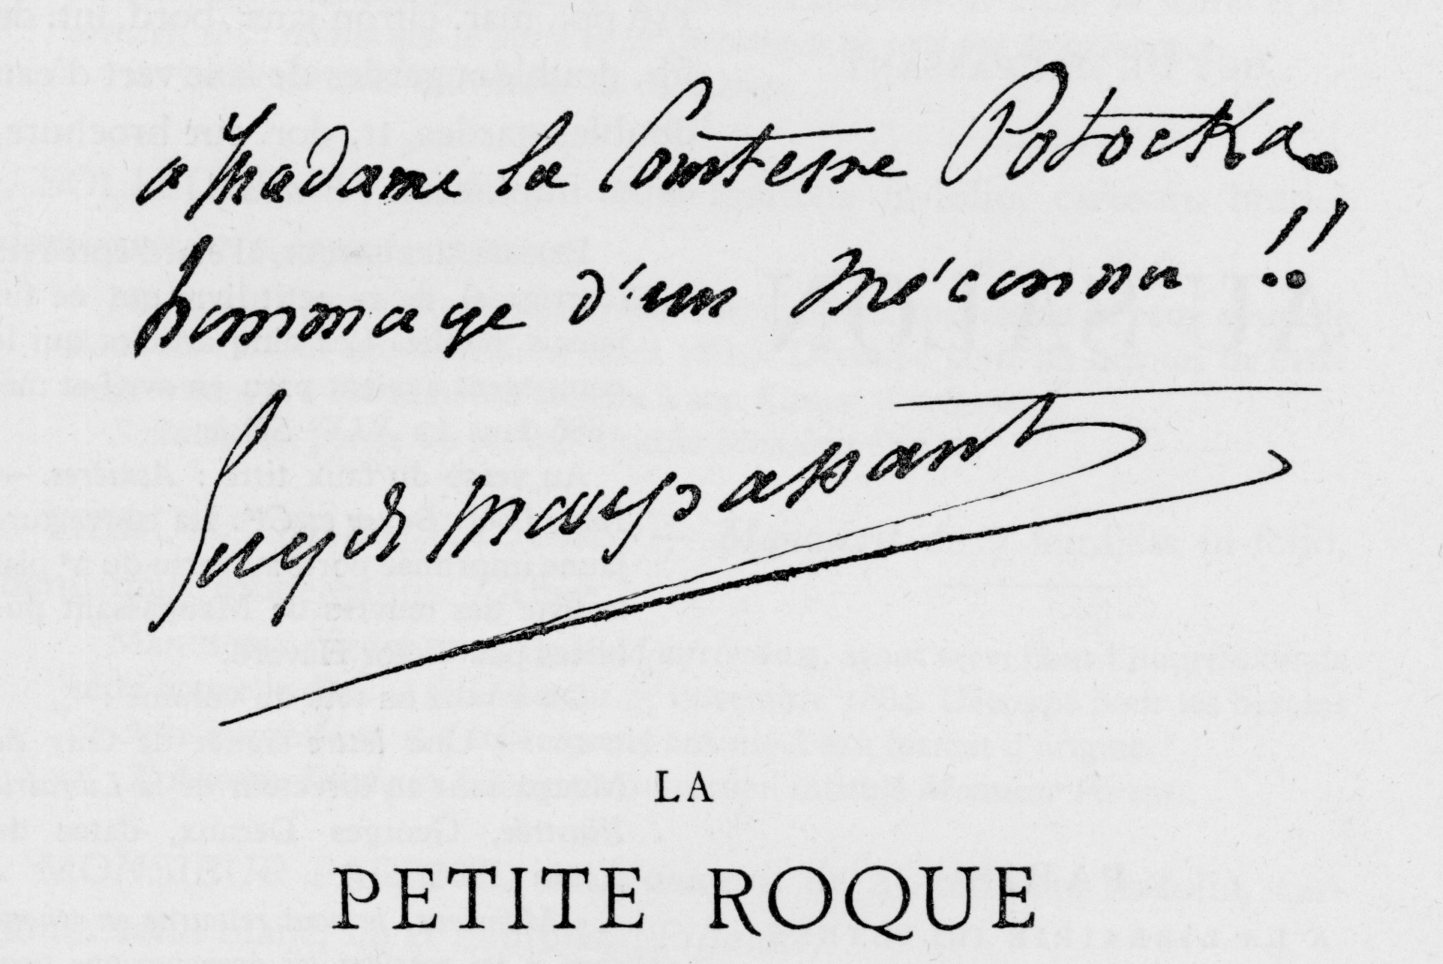 a Madame la Comtesse Potocka.
hommage d'un méconnu !!
Guy de Maupassant
LA
PETITE ROQUE